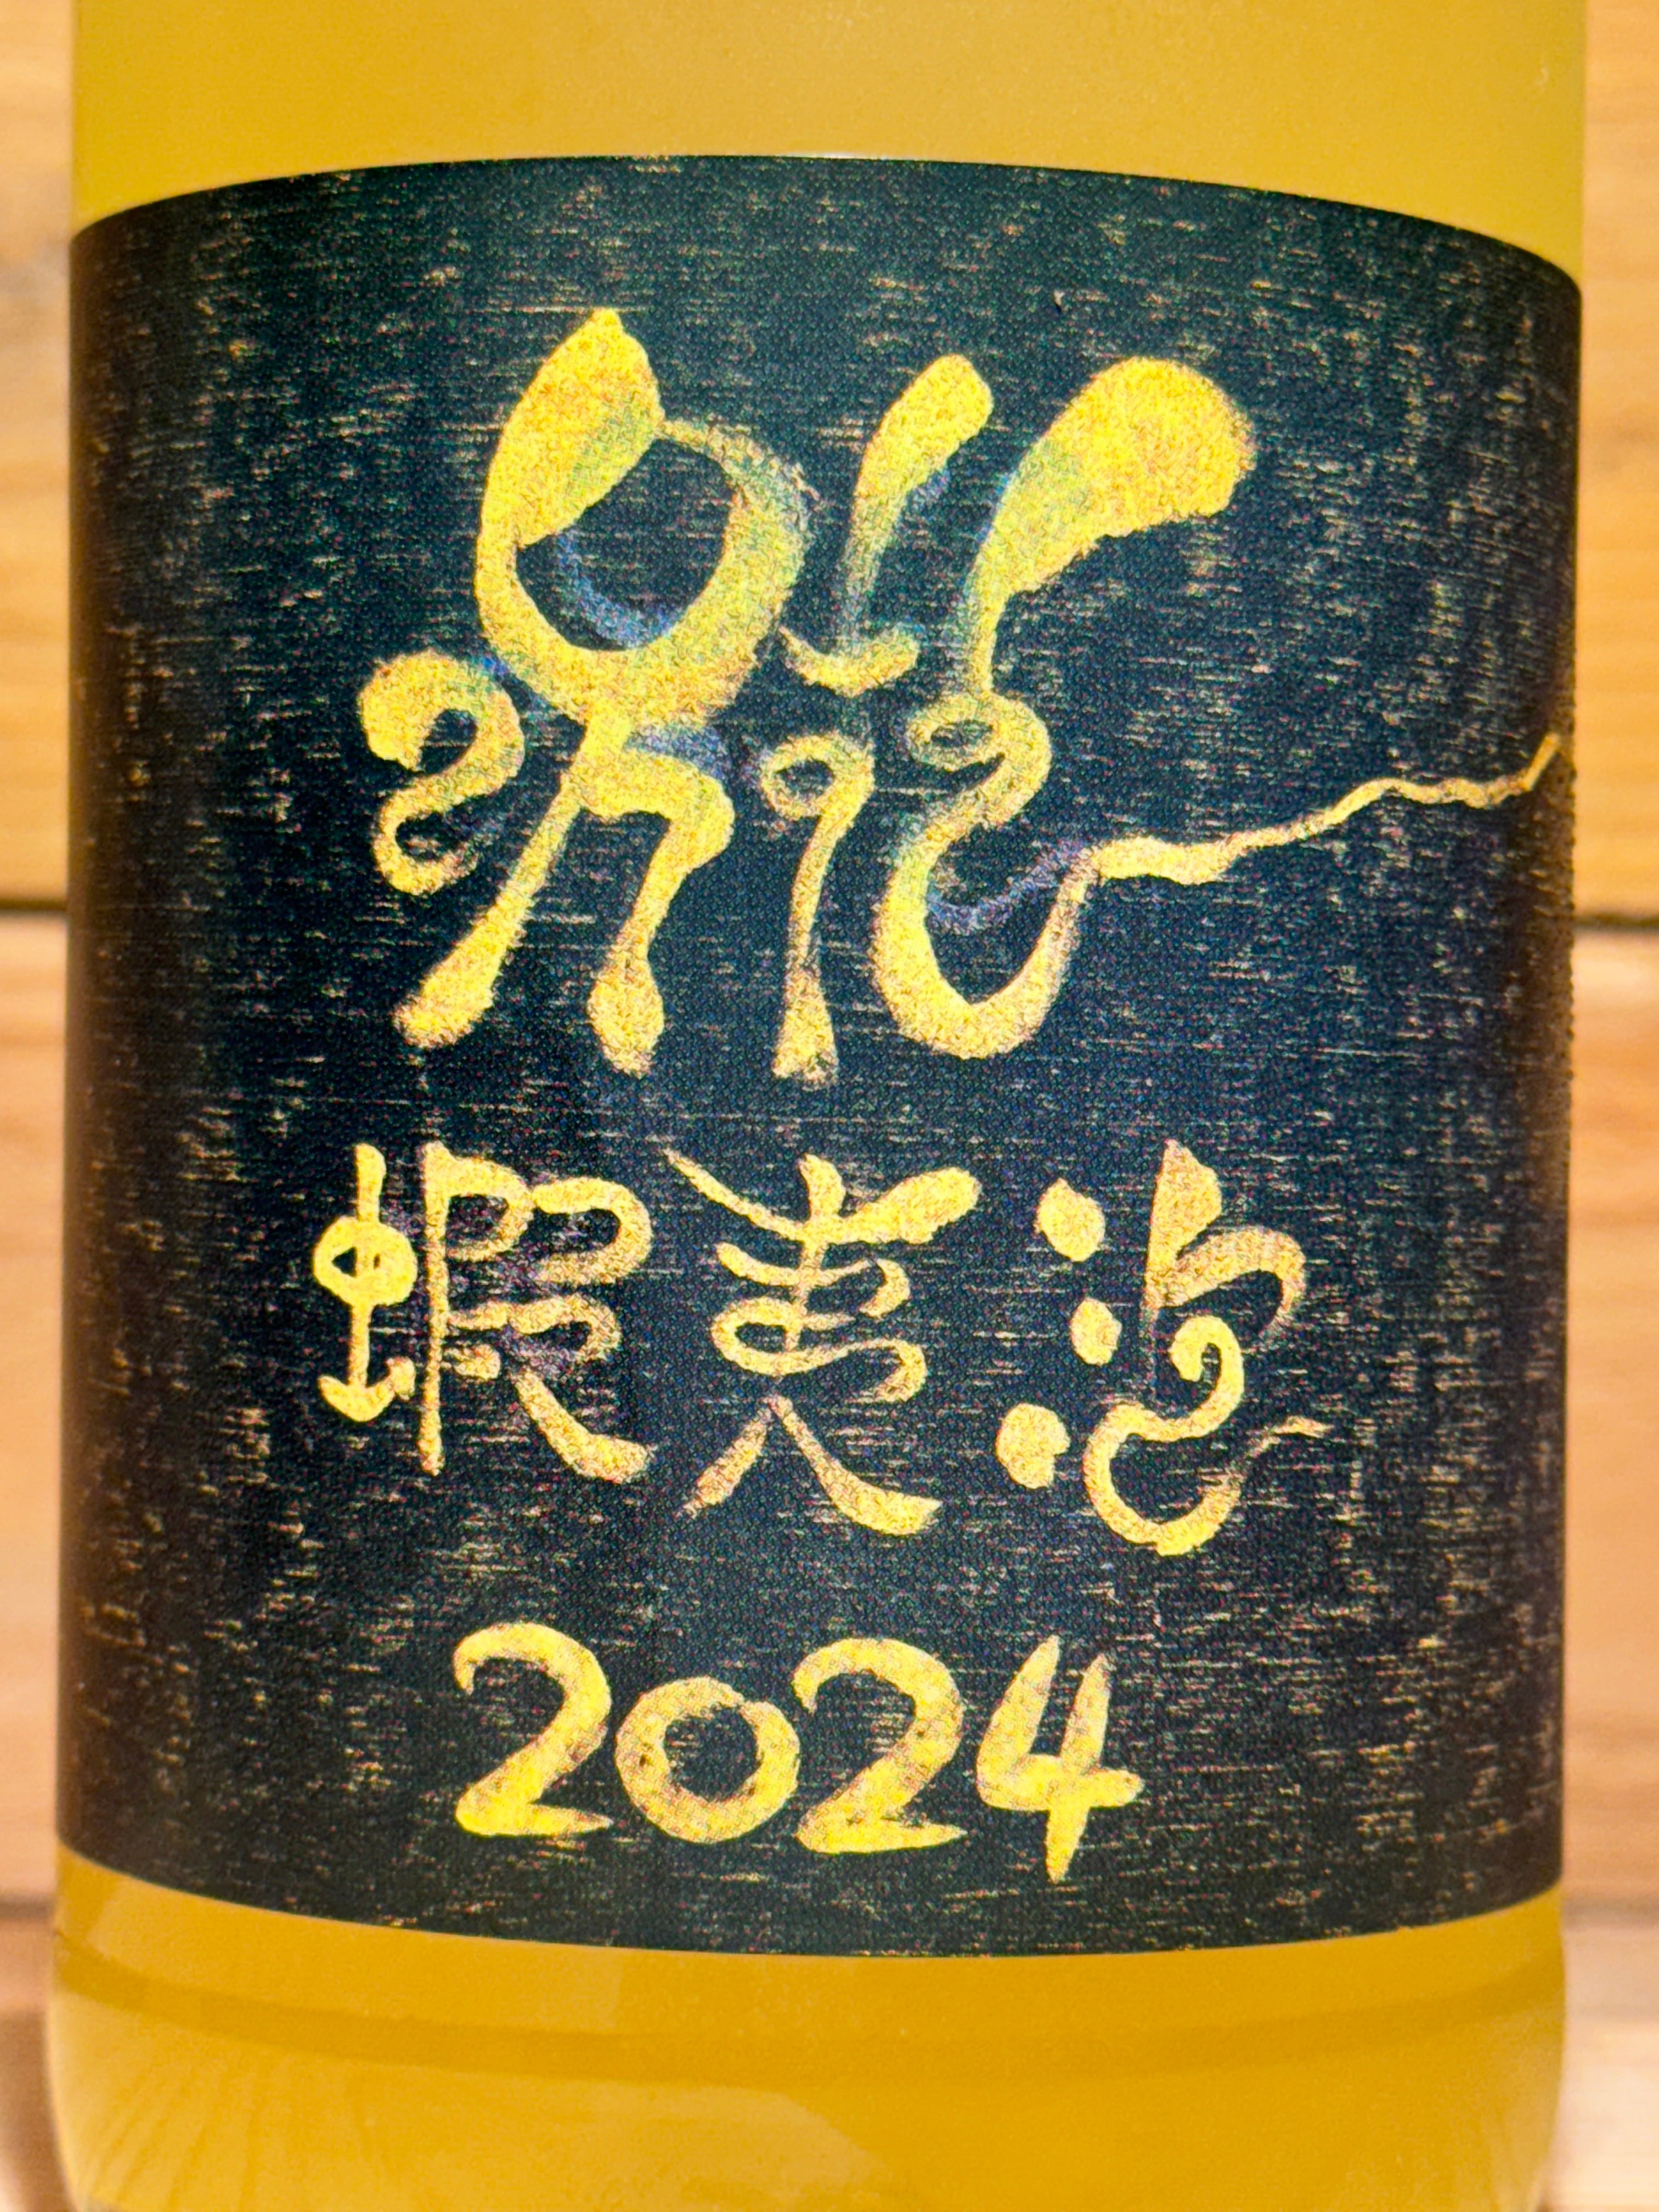 蝦夷泡
2024